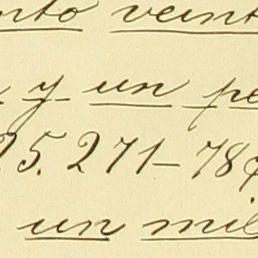 nto veint
y un pe
25.271-78¢
un mil